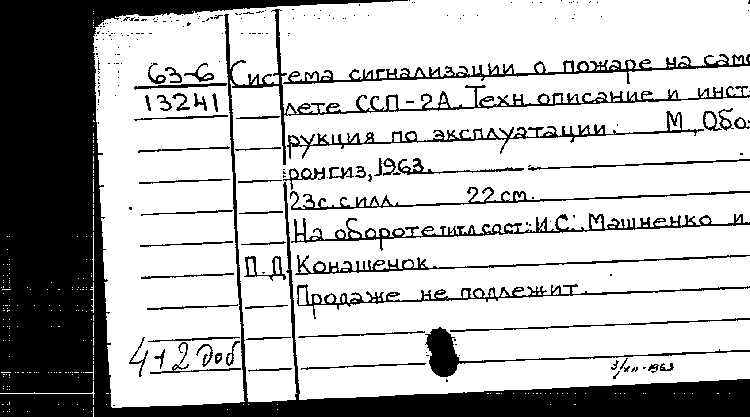 63-6 Система сигнализации о пожаре на само
13241 лете ССП-2А. Техн. описание и инст-
рукция по эксплуатации. М., Обо-
ронгиз, 1963.
23 с. с илл. 22 см.
На обороте тит. л. сост.: И.С. Машненко и
П.Д. Конашенок.
Продаже не подлежит.
4+2 доб
3/XII-1963